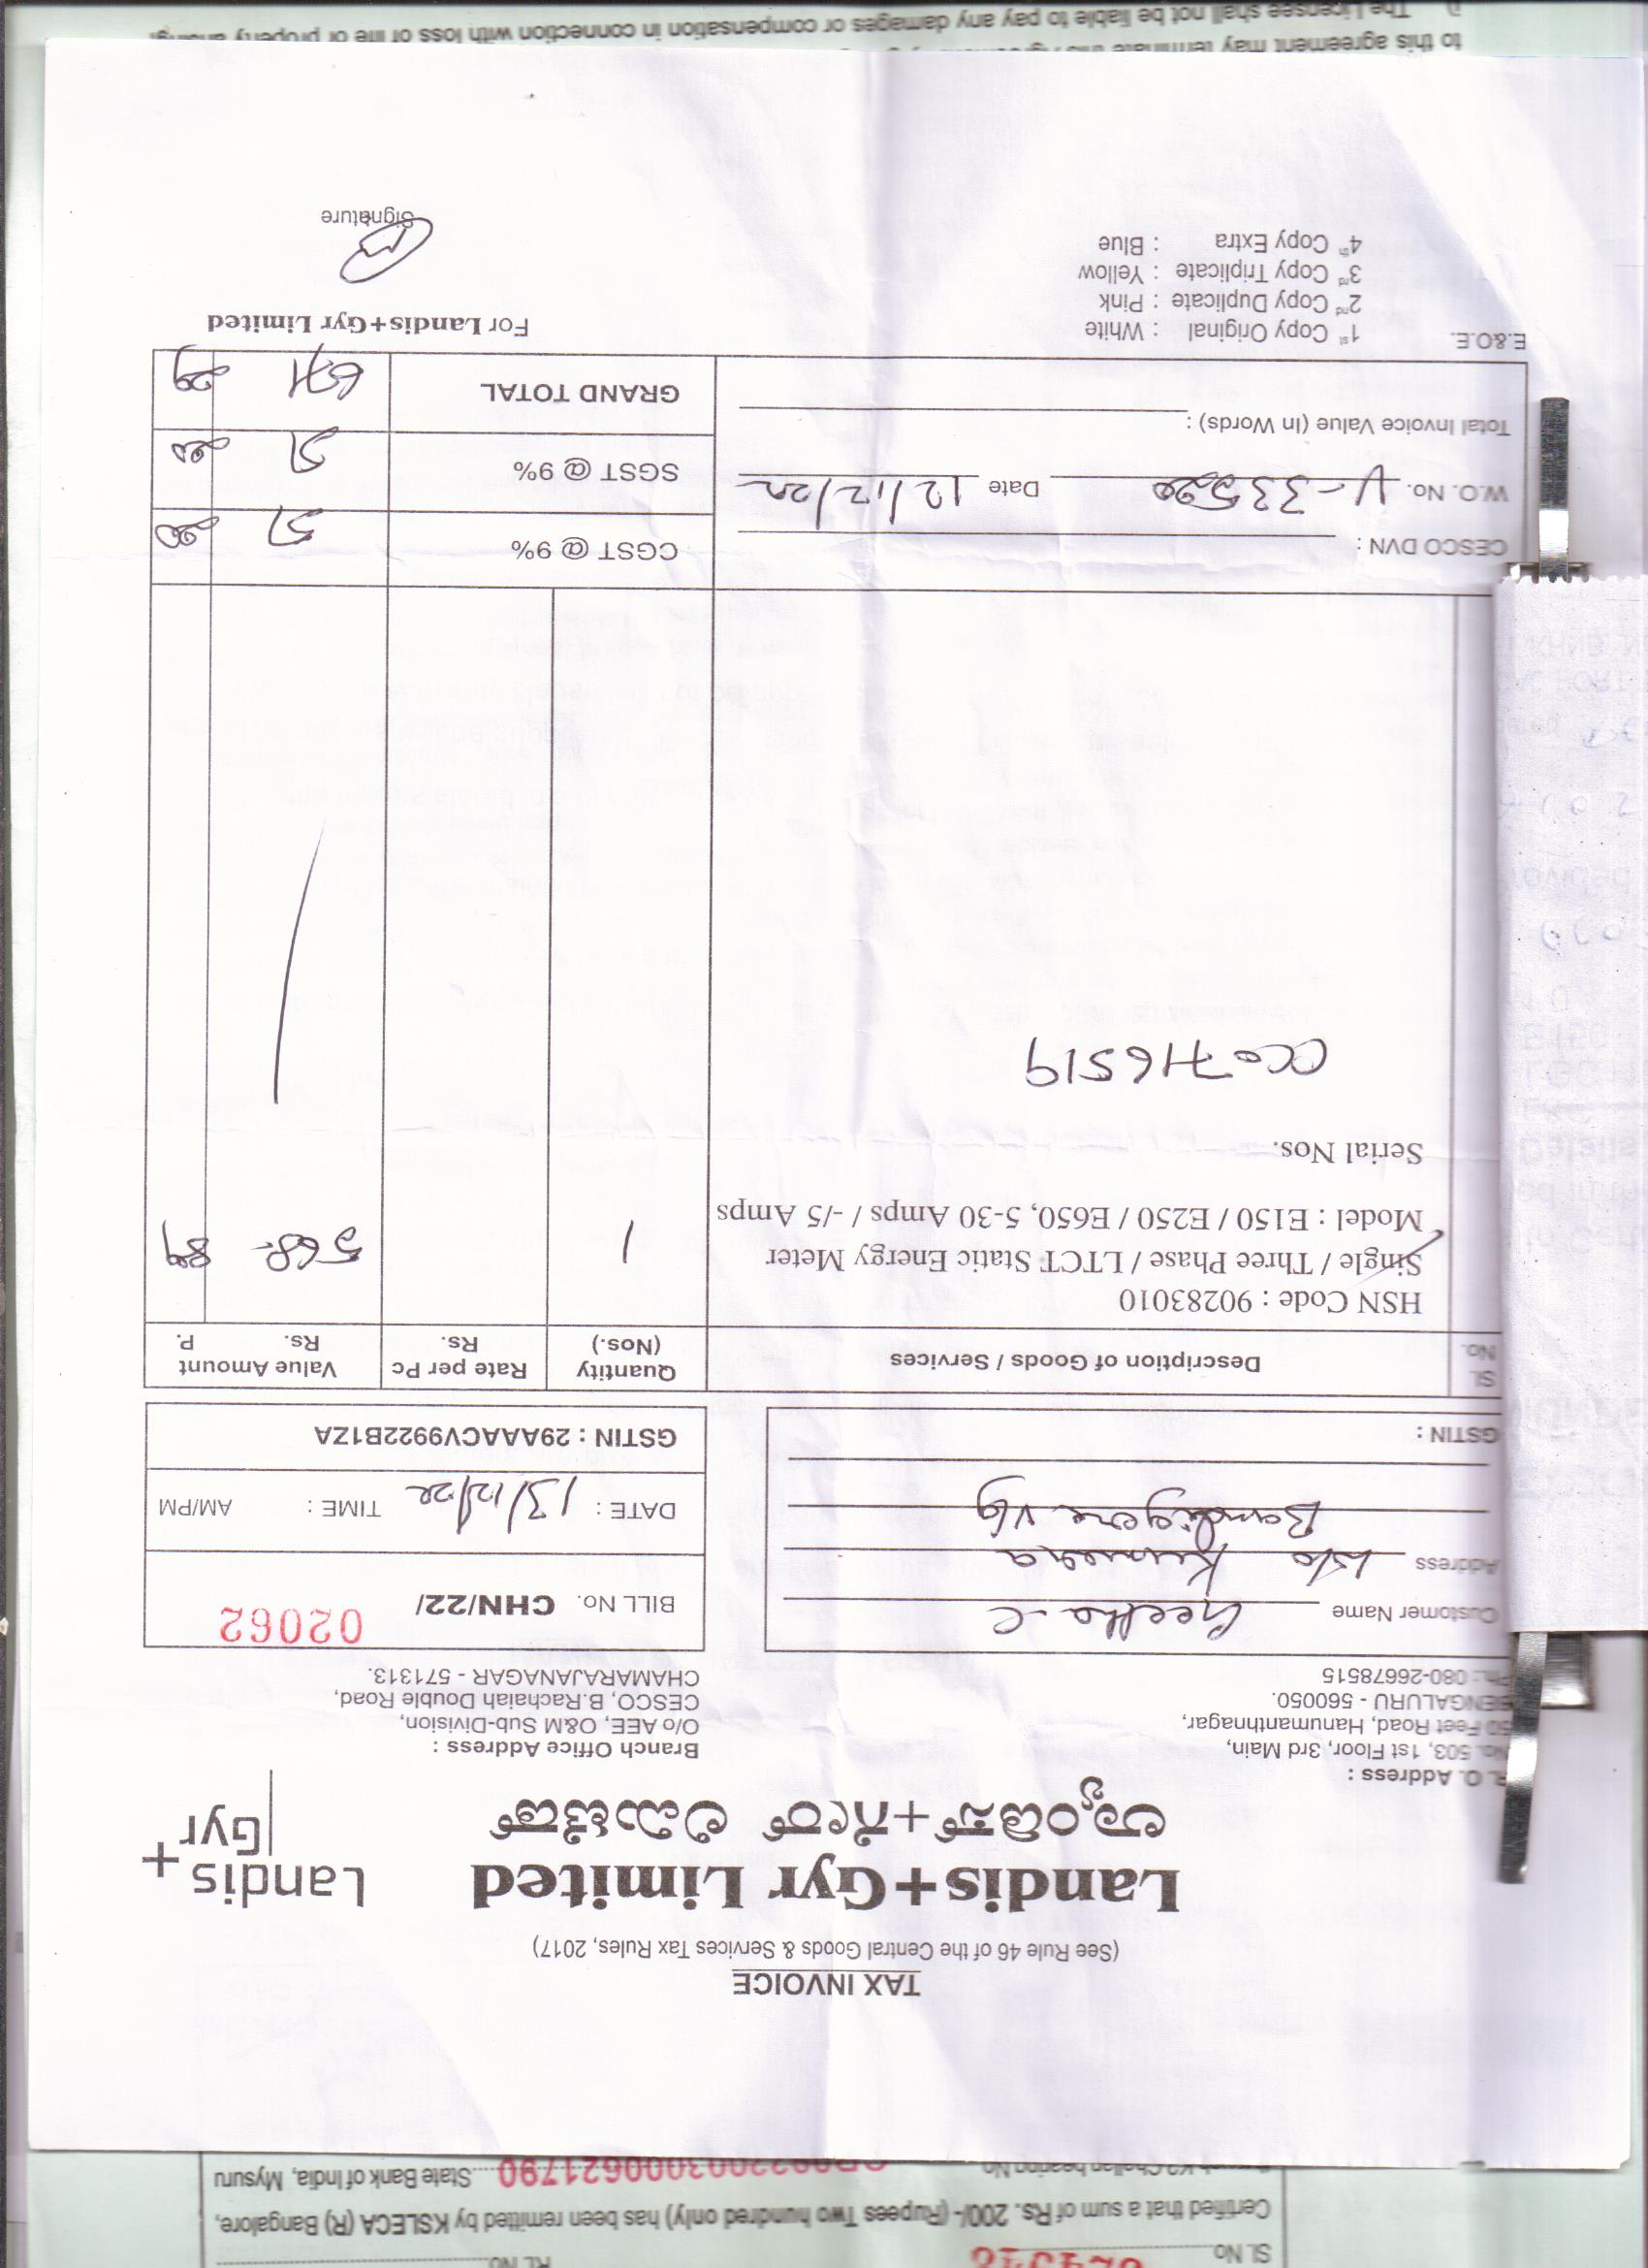 Sl.No
RL No.
Certified that a sum of Rs. 200/- (Rupees Two hundred only) has been remitted by KSLECA (R) Bangalore,
State Bank of India, Mysuru
TAX INVOICE
(See Rule 46 of the Central Goods & Services Tax Rules, 2017)
Landis+Gyr Limited
ಲ್ಯಾಂಡಿಸ್+ಗೀರ್ ಲಿಮಿಟೆಡ್
Landis+
Gyr
R.O. Address :
No. 503, 1st Floor, 3rd Main,
50 Feet Road, Hanumanthnagar,
BENGALURU - 560050.
Ph.: 080-26678515
Branch Office Address :
O/o AEE, O&M Sub-Division,
CESCO, B.Rachaiah Double Road,
CHAMARAJANAGAR - 571313.
Customer Name Geetha.C
Address W/o Kumara
Bandigere V/g
GSTIN :
BILL No. CHN/22/ 02062
DATE : 13/12/22 TIME : AM/PM
GSTIN : 29AAACV9922B1ZA
SL No. Description of Goods / Services Quantity (Nos.) Rate per Pc Rs. Value Amount Rs. P.
HSN Code : 90283010
Single / Three Phase / LTCT Static Energy Meter 1 568- 89
Model : E150 / E250 / E650, 5-30 Amps / -/5 Amps
Serial Nos.
CC0716519
CESCO DVN :
W.O. No. V-33520 Date 12/12/22
Total Invoice Value (In Words) :
CGST @ 9% 51 20
SGST @ 9% 51 20
GRAND TOTAL 671 29
E.&O.E.
1st Copy Original : White
2nd Copy Duplicate : Pink
3rd Copy Triplicate : Yellow
4th Copy Extra : Blue
For Landis+Gyr Limited
Signature
to this agreement may terminate this
i) The Licensee shall not be liable to pay any damages or compensation in connection with loss of life or property arising